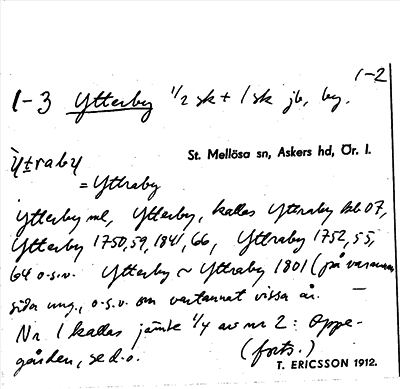 1-2
1-3 Ytterby 1/2 sk + 1 sk jb, by.
St. Mellösa sn, Askers hd, Ör. l.
Ytraby
= Yttraby
Ytterby ml, Ytterby, kallas Yttraby Jb 07,
Ytterby 1750, 59, 1841, 66, Yttraby 1752, 55,
64 o.s.v. Ytterby ~ Yttraby 1801 (på varann
sidan ung., o.s.v. om vartannat vissa år. –
Nr 1 kallas jämte 1/4 av nr 2: Oppe-
gården, se d.o. (forts.)
T. ERICSSON 1912.